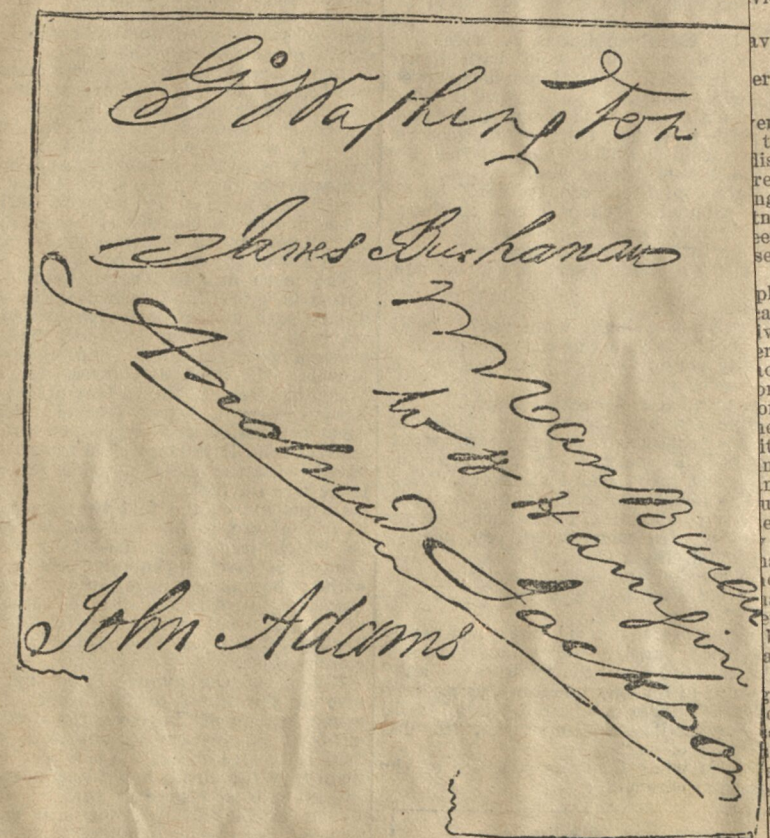 G Washington
James Buchanan
M Van Buren
W H Harrison
Andrew Jackson
John Adams